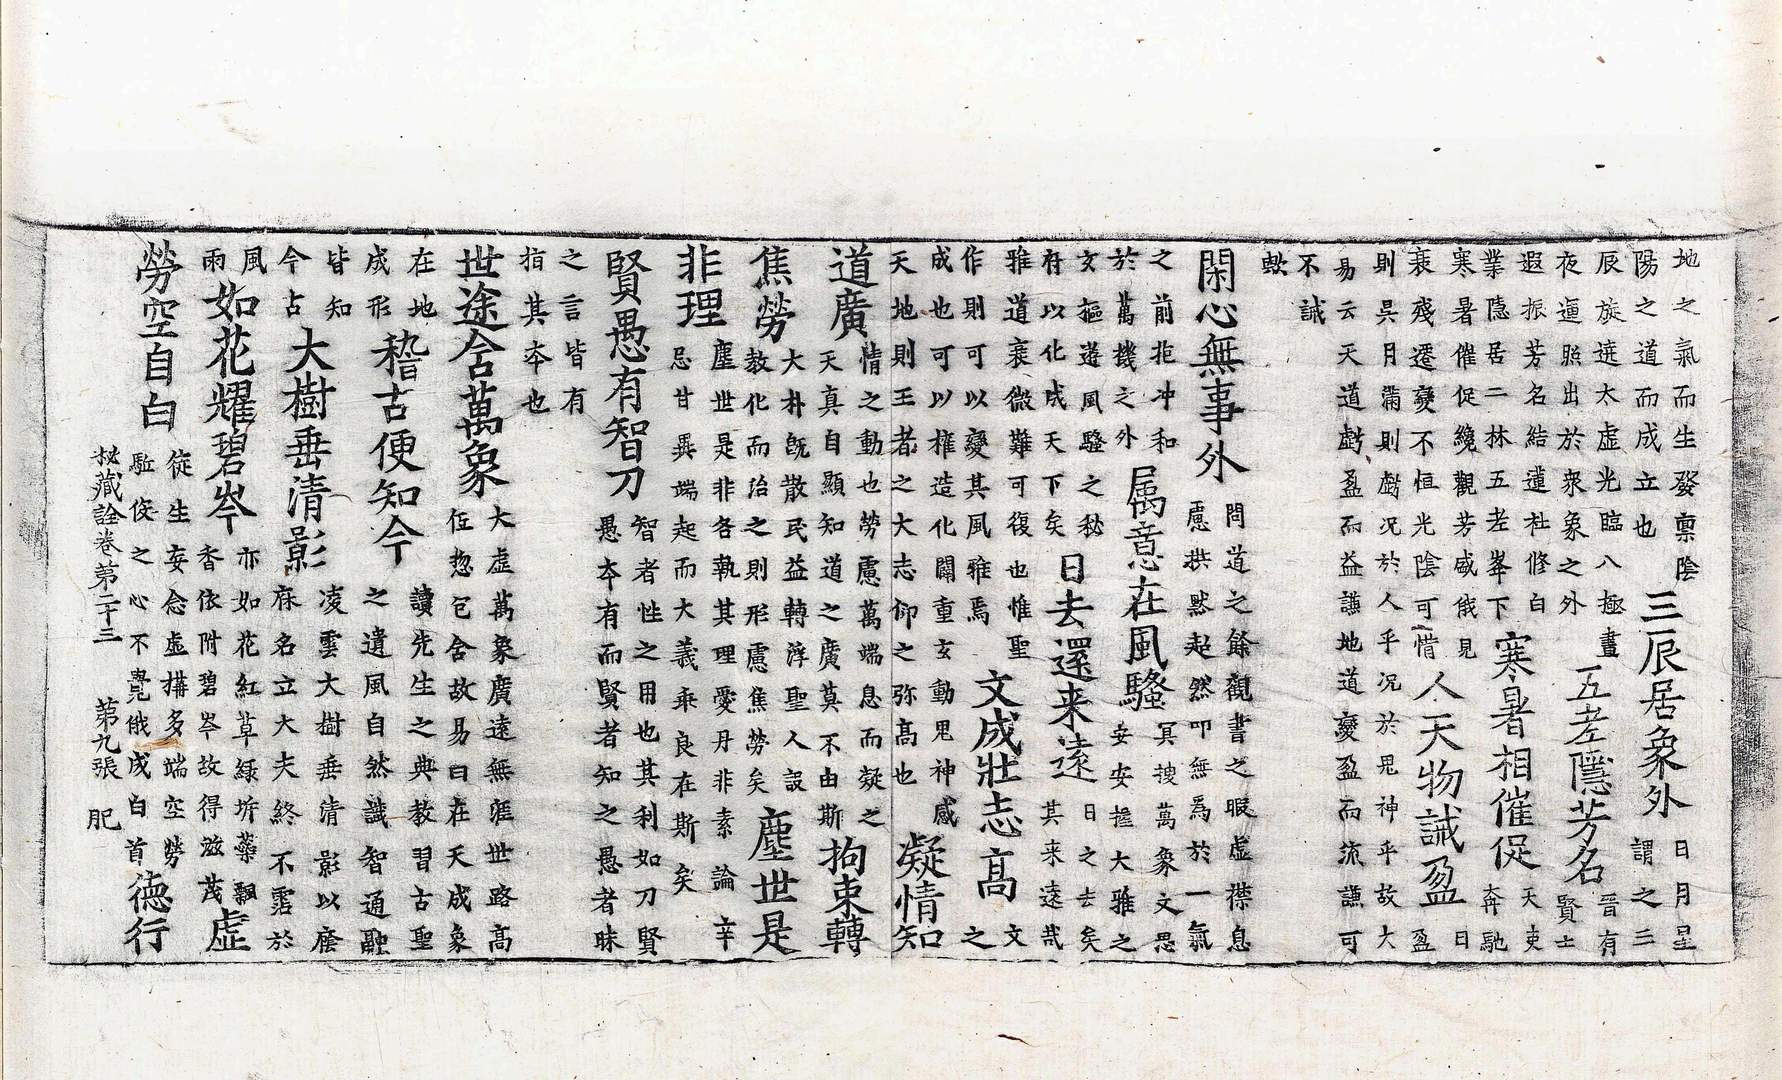 地之氣而生發稟陰
陽之道而成立也
三辰居象外
日月星
謂之三
辰旋遶太虛光臨八極晝
夜運照出於衆象之外
五老隱芳名
晉有
賢士
遐振芳名結蓮社修白
業隱居二林五老峯下
寒暑相催促
天吏
奔馳
寒暑催促纔觀芳盛俄見
衰殘遷變不恒光陰可惜
人天物誡盈
日
盈
則昃月滿則虧况於人乎况於鬼神乎故大
易云天道虧盈而益謙地道變盈而流謙可
不誡
歟
閑心無事外
問道之餘觀書之暇虛襟息
慮拱默起然叩無爲於一氣
之前拒冲和
於萬機之外
属意在風騷
冥搜萬象文思
妄安握大雅之
文樞遒風騷之秘
府以化成天下矣
日去還来遠
日之去矣
其来遠哉
雅道衰微難可復也惟聖
作則可以變其風雅焉
文成壯志高
文
之
成也可以權造化闢重玄動鬼神感
天地則王者之大志仰之弥高也
凝情知
道廣
情之動也勞慮萬端息而凝之
天真自顯知道之廣莫不由斯
拘束轉
焦勞
大朴旣散民益轉淳聖人設
教化而治之則形慮焦勞矣
塵世是
非理
塵世是非各執其理愛丹非素論辛
忌甘異端起而大義乖良在斯矣
賢愚有智刀
智者性之用也其利如刀賢
愚夲有而賢者知之愚者昧
之言皆有
指其夲也
世途含萬象
大虛萬象廣遠無涯世路高
低惣包含故易曰在天成象
在地
成形
稽古便知今
讀先生之典教習古聖
之遺風自然識智通融
皆知
今古
大樹垂清影
凌雲大樹垂清影以廕
庥名立大夫終不霑於
風
雨
如花耀碧岑
亦如花紅草綠坼蘂飄
香依附碧岑故得滋茂
虛
勞空自白
徒生妄念虛搆多端空勞
駈役之心不覺俄成白首
德行
秘藏詮卷第二十三　第九張　肥